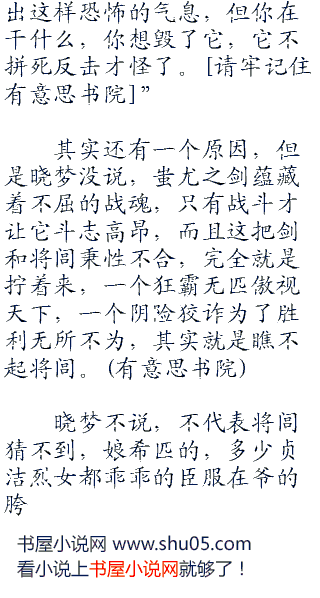 出这样恐怖的气息，但你在
干什么，你想毁了它，它不
拼死反击才怪了。[请牢记住
有意思书院]”
其实还有一个原因，但
是晓梦没说，蚩尤之剑蕴藏
着不屈的战魂，只有战斗才
让它斗志高昂，而且这把剑
和将闾秉性不合，完全就是
拧着来，一个狂霸无匹傲视
天下，一个阴险狡诈为了胜
利无所不为，其实就是瞧不
起将闾。(有意思书院)
晓梦不说，不代表将闾
猜不到，娘希匹的，多少贞
洁烈女都乖乖的臣服在爷的
胯
书屋小说网 www.shu05.com
看小说上书屋小说网就够了！